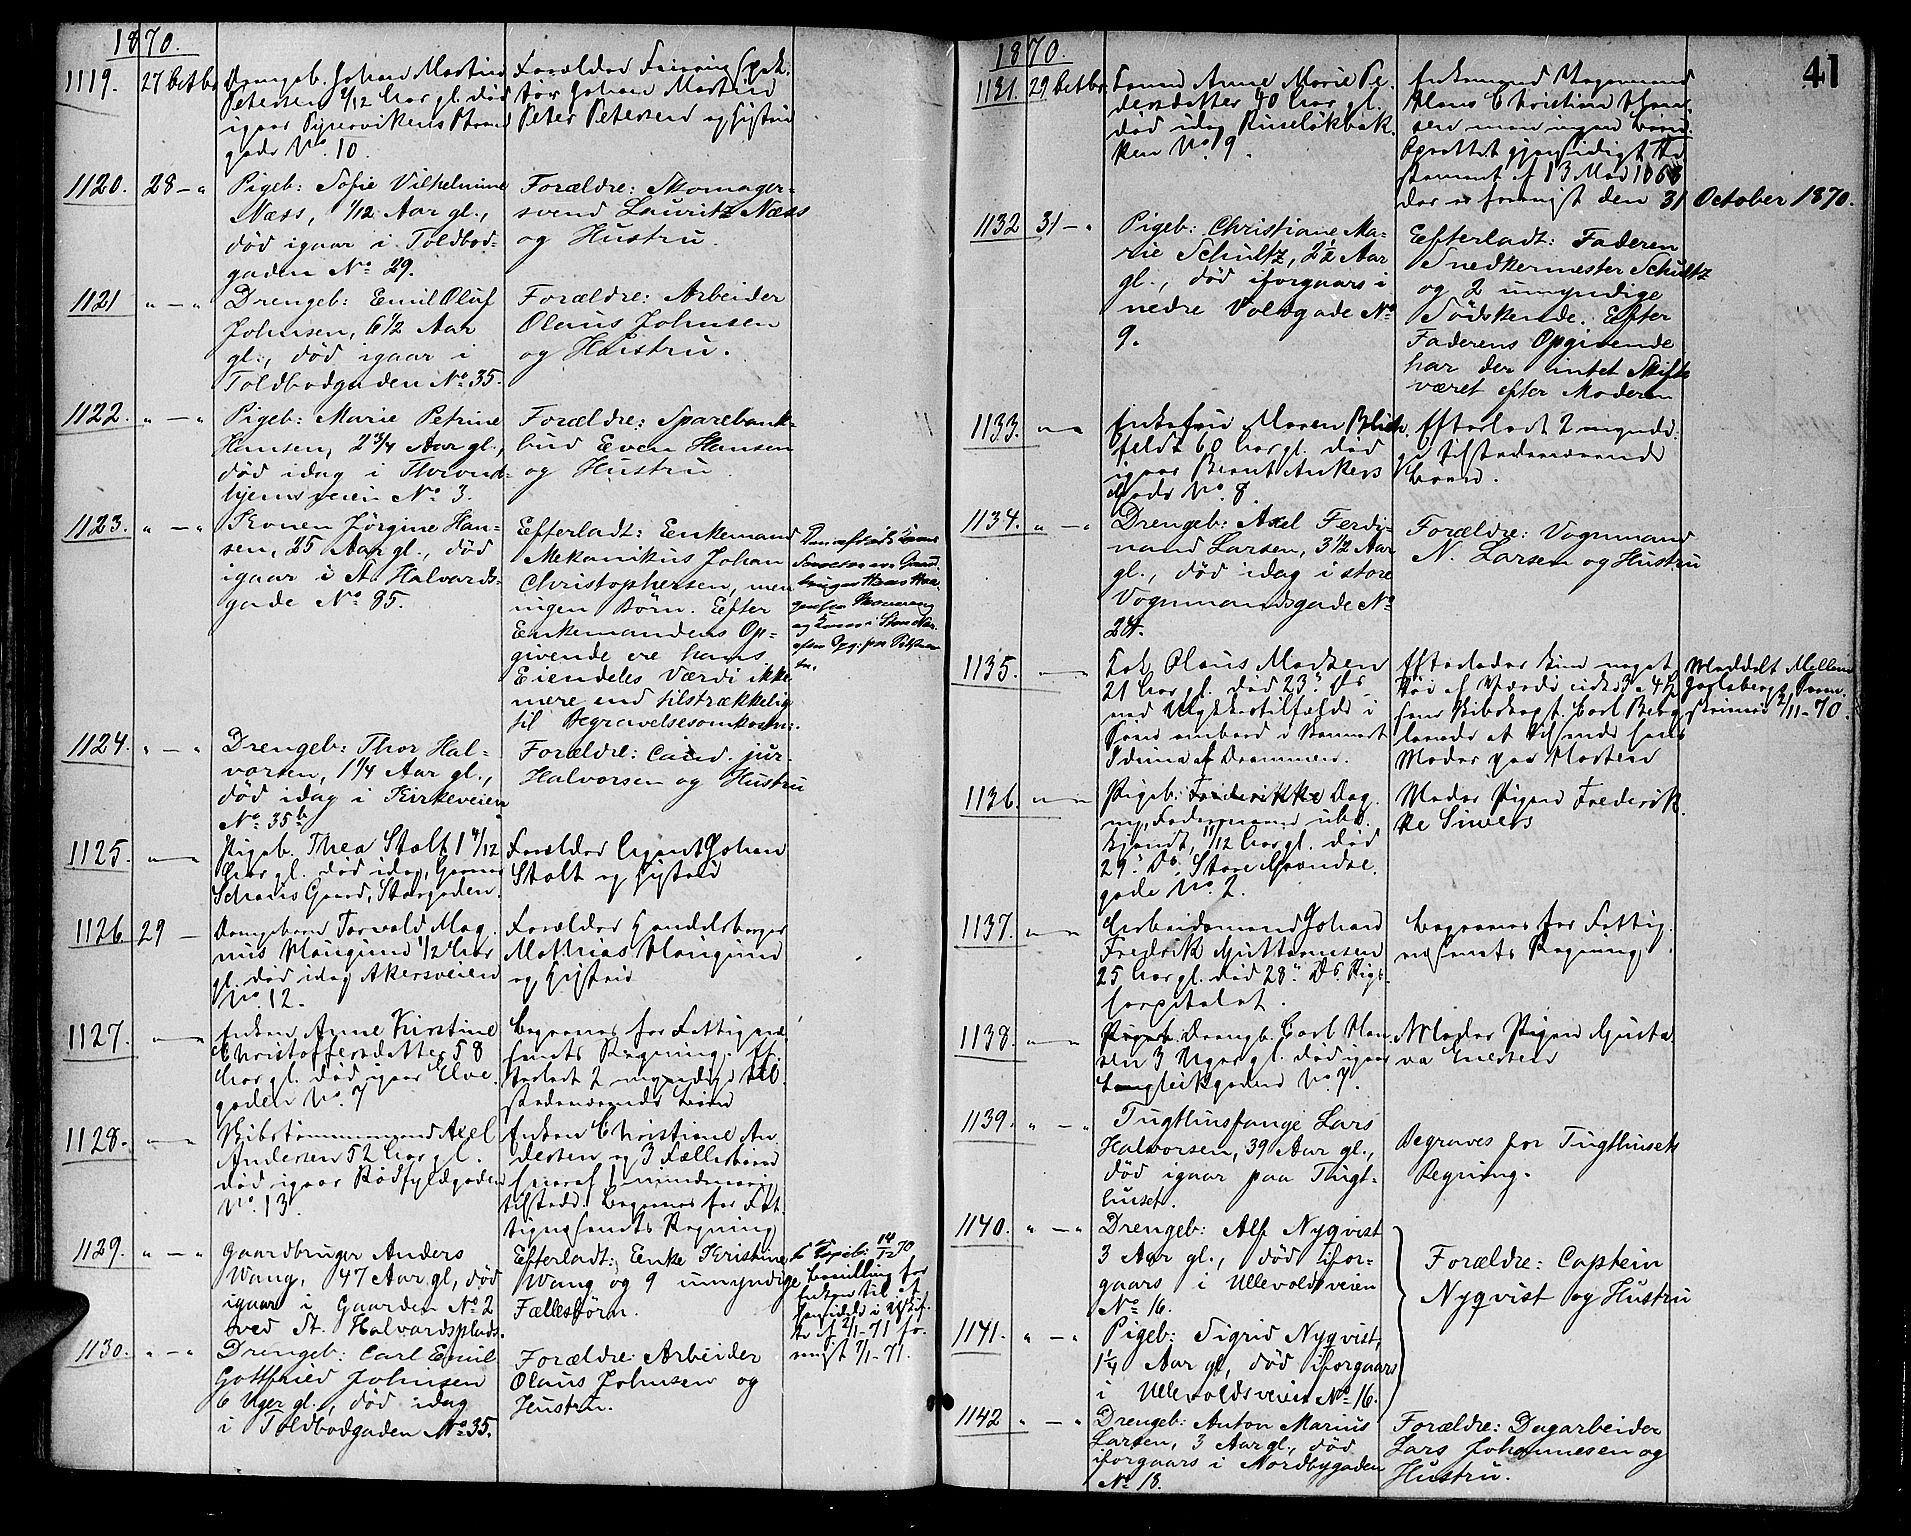 1870.
1119. 27 Octbr Drengeb. Johan Martin
Petersen 2/12 Aar gl. død
igaar Pipervikens Strand
gade No. 10.
Forældre
Johan Martin
Peter Petersen og Hustru
1120. 28 - " Pigeb: Sofie Vilhelmine
Næss, 1/12 Aar gl.,
død igaar i Toldbod-
gaden No 29.
Forældre: Skomager-
svend Lauritz Næss
og Hustru.
1121 " - " Drengeb: Emil Oluf
Johnsen, 6 1/2 Aar
gl., død igaar i
Toldbodgaden No 35.
Forældre: Arbeider
Olaus Johnsen
og Hustru.
1122. " - " Pigeb: Marie Petrine
Hansen, 2 3/4 Aar gl.,
død idag i Thrond-
hjemsveien No 3.
Forældre: Sparebank-
bud Even Hansen
og Hustru
1123. " - " Konen Jørgine Han-
sen, 25 Aar gl., død
igaar i St. Halvards-
gade No 85.
Efterladt: Enkemand
Mekanikus Johan
Christophersen, men
ingen Børn. Efter
Enkemandens Op-
givende ere hans
Eiendeles Værdi ikke
mere end tilstrækkelig
til Begravelsesomkostn:
1124. " - " Drengeb: Thor Hal-
vorsen, 1 1/4 Aar gl.,
død idag i Kirkeveien
No 35 b
Forældre: Cand. jur.
Halvorsen og Hustru
1125. " - " Pigeb. Thea Stolt 1 4/12
Aar gl. død idag,
Gaard, Storgaden.
Forældre Agent Johan
Stolt og Hustru
1126. 29 - Drengebarn Torvald Mag
nus Haugund 1/2 Aar
gl. død idag Akersveien
No. 12.
Forældre Handelsborger
Mathias Haugund
og Hustru
1127. " - " Enken Anne Kirstine
Christoffersdatter 58
Aar gl. død igaar Elve
gaden No. 7
Begraves for Fattigvæ
senets Regning. Ef
terladt 2 myndige til
stedeværende Børn
1128. " - " Axel
Andersen 52 Aar gl.
død igaar Rødfyldgaden
No. 13.
Enken Christiane An
dersen og 3 Fællesbørn
hvoraf 1 mindreaarig
tilstede. Begraves for Fat
tigvæsenets Regning
1129. " - " Gaardbruger Anders
Wang, 47 Aar gl, død
igaar i Gaarden No 2
ved St. Halvardsplads.
Efterladt: Enke Kristine
Wang og 9 umyndige
Fællesbørn.
14/12 70
Bevilling for
Enken til at
hensidde i uskif
te af 2/1-71 for
evist 7/1-71.
1130. " - " Drengeb: Carl Emil
Gottfried Johnsen
6 Uger gl., død idag
i Toldbodgaden No 35.
Forældre: Arbeider
Olaus Johnsen og
Hustru.
41
1870.
1131. 29 Octbr Konen Anne Marie Pe
dersdatter 40 Aar gl.
død idag Ruseløkbak
ken No. 9.
Enkemand Vognmand
Hans Christian Han
sen men ingen Børn.
Oprettet gjensidigt Te
stament af 13 Mai 1868
der er forevist den 31 October 1870.
1132 31 - " Pigeb: Christiane Ma-
rie Schultz, 2 1/2 Aar
gl., død iforgaars i
nedre Voldgade No
9.
Efterladt: Faderen
Snedkermester Schultz
og 2 umyndige
Sødskende. Efter
Faderens Opgivende
har der intet Skifte
været efter Moderen
1133. " - " Enkefru Maren Blich
feldt 60 Aar gl. død
igaar Bernt Ankers
Gade No. 8.
Efterladt 2 myndi
ge tilstedeværende
Børn.
1134. " - " Drengeb: Axel Ferdi-
nand Larsen, 3 1/2 Aar
gl., død idag i store
Vognmandsgade No
24.
Forældre: Vognmand
N. Larsen og Hustru
1135. " - " Kok Olaus Madsen
21 Aar gl. død 23de ds
ved Ulykkestilfælde i
ombord i
Iduna af Drammen.
Efterlader kun noget
Tøi af Værdi cirka 3 a 4
som Skibskapt. Carl Berg
lovede at tilsende hans
Moder paa Horten
Meddelt Mellem
Jarlsbergs
2/11-70.
1136. " - " Pigeb. Frederikke Dag
ny, Fadernavn ube
kjendt, 11/12 Aar gl. død
29de Ds. Store Grændse
gade No. 2.
Moder Pigen Frederik
ke Sivers
1137. " - " Arbeidsmand Johan
Fredrik Guttormsen
25 Aar gl. død 28de Ds. Rigs
hospitalet.
Begraves for Fattig
væsenets Regning.
1138. " - " Pigeb. Drengb. Carl Han
sen 3 Uger gl. død igaar
Langleikgaden No. 7.
Moder Pigen Gusta
va Enersen
1139. " - " Tugthusfange Lars
Halvorsen, 39 Aar gl.,
død igaar paa Tugt-
huset.
Begraves for Tugthusets
Regning.
1140. " - " Drengeb: Alf Nyqvist
3 Aar gl., død ifor-
gaars i Ullevoldsveien
No 16.
Forældre: Captein
Nyqvist og Hustru
1141. " - " Pigeb: Sigrid Nyqvist,
1 1/4 Aar gl, død iforgaars
i Ullevoldsveien No 16.
1142 " - " Drengeb: Anton Marius
Larsen, 3 Aar gl., død
iforgaars i Nordbygaden
No 18.
Forældre: Dagarbeider
Lars Johannesen og
Hustru.